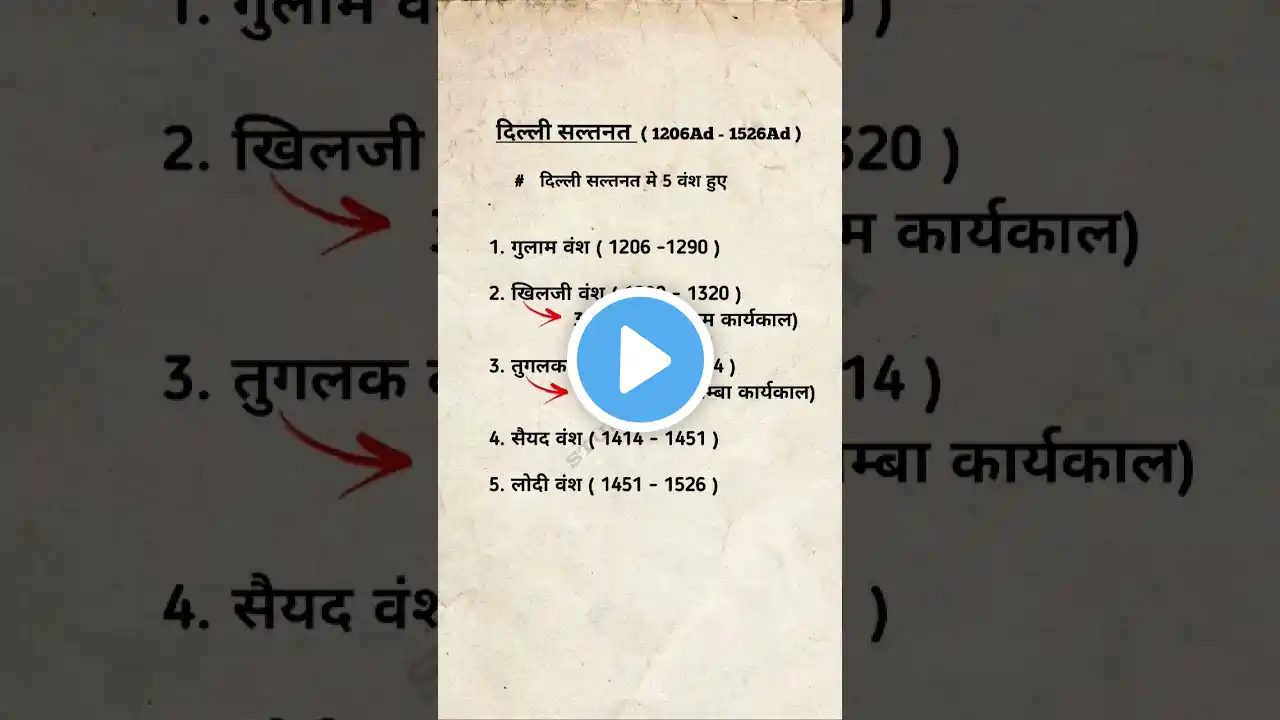 दिल्ली सल्तनत ( 1206Ad - 1526Ad )
# दिल्ली सल्तनत मे 5 वंश हुए
1. गुलाम वंश ( 1206 -1290 )
2. खिलजी वंश - 1320 )
कार्यकाल)
3. तुगलक )
कार्यकाल)
4. सैयद वंश ( 1414 - 1451 )
5. लोदी वंश ( 1451 - 1526 )